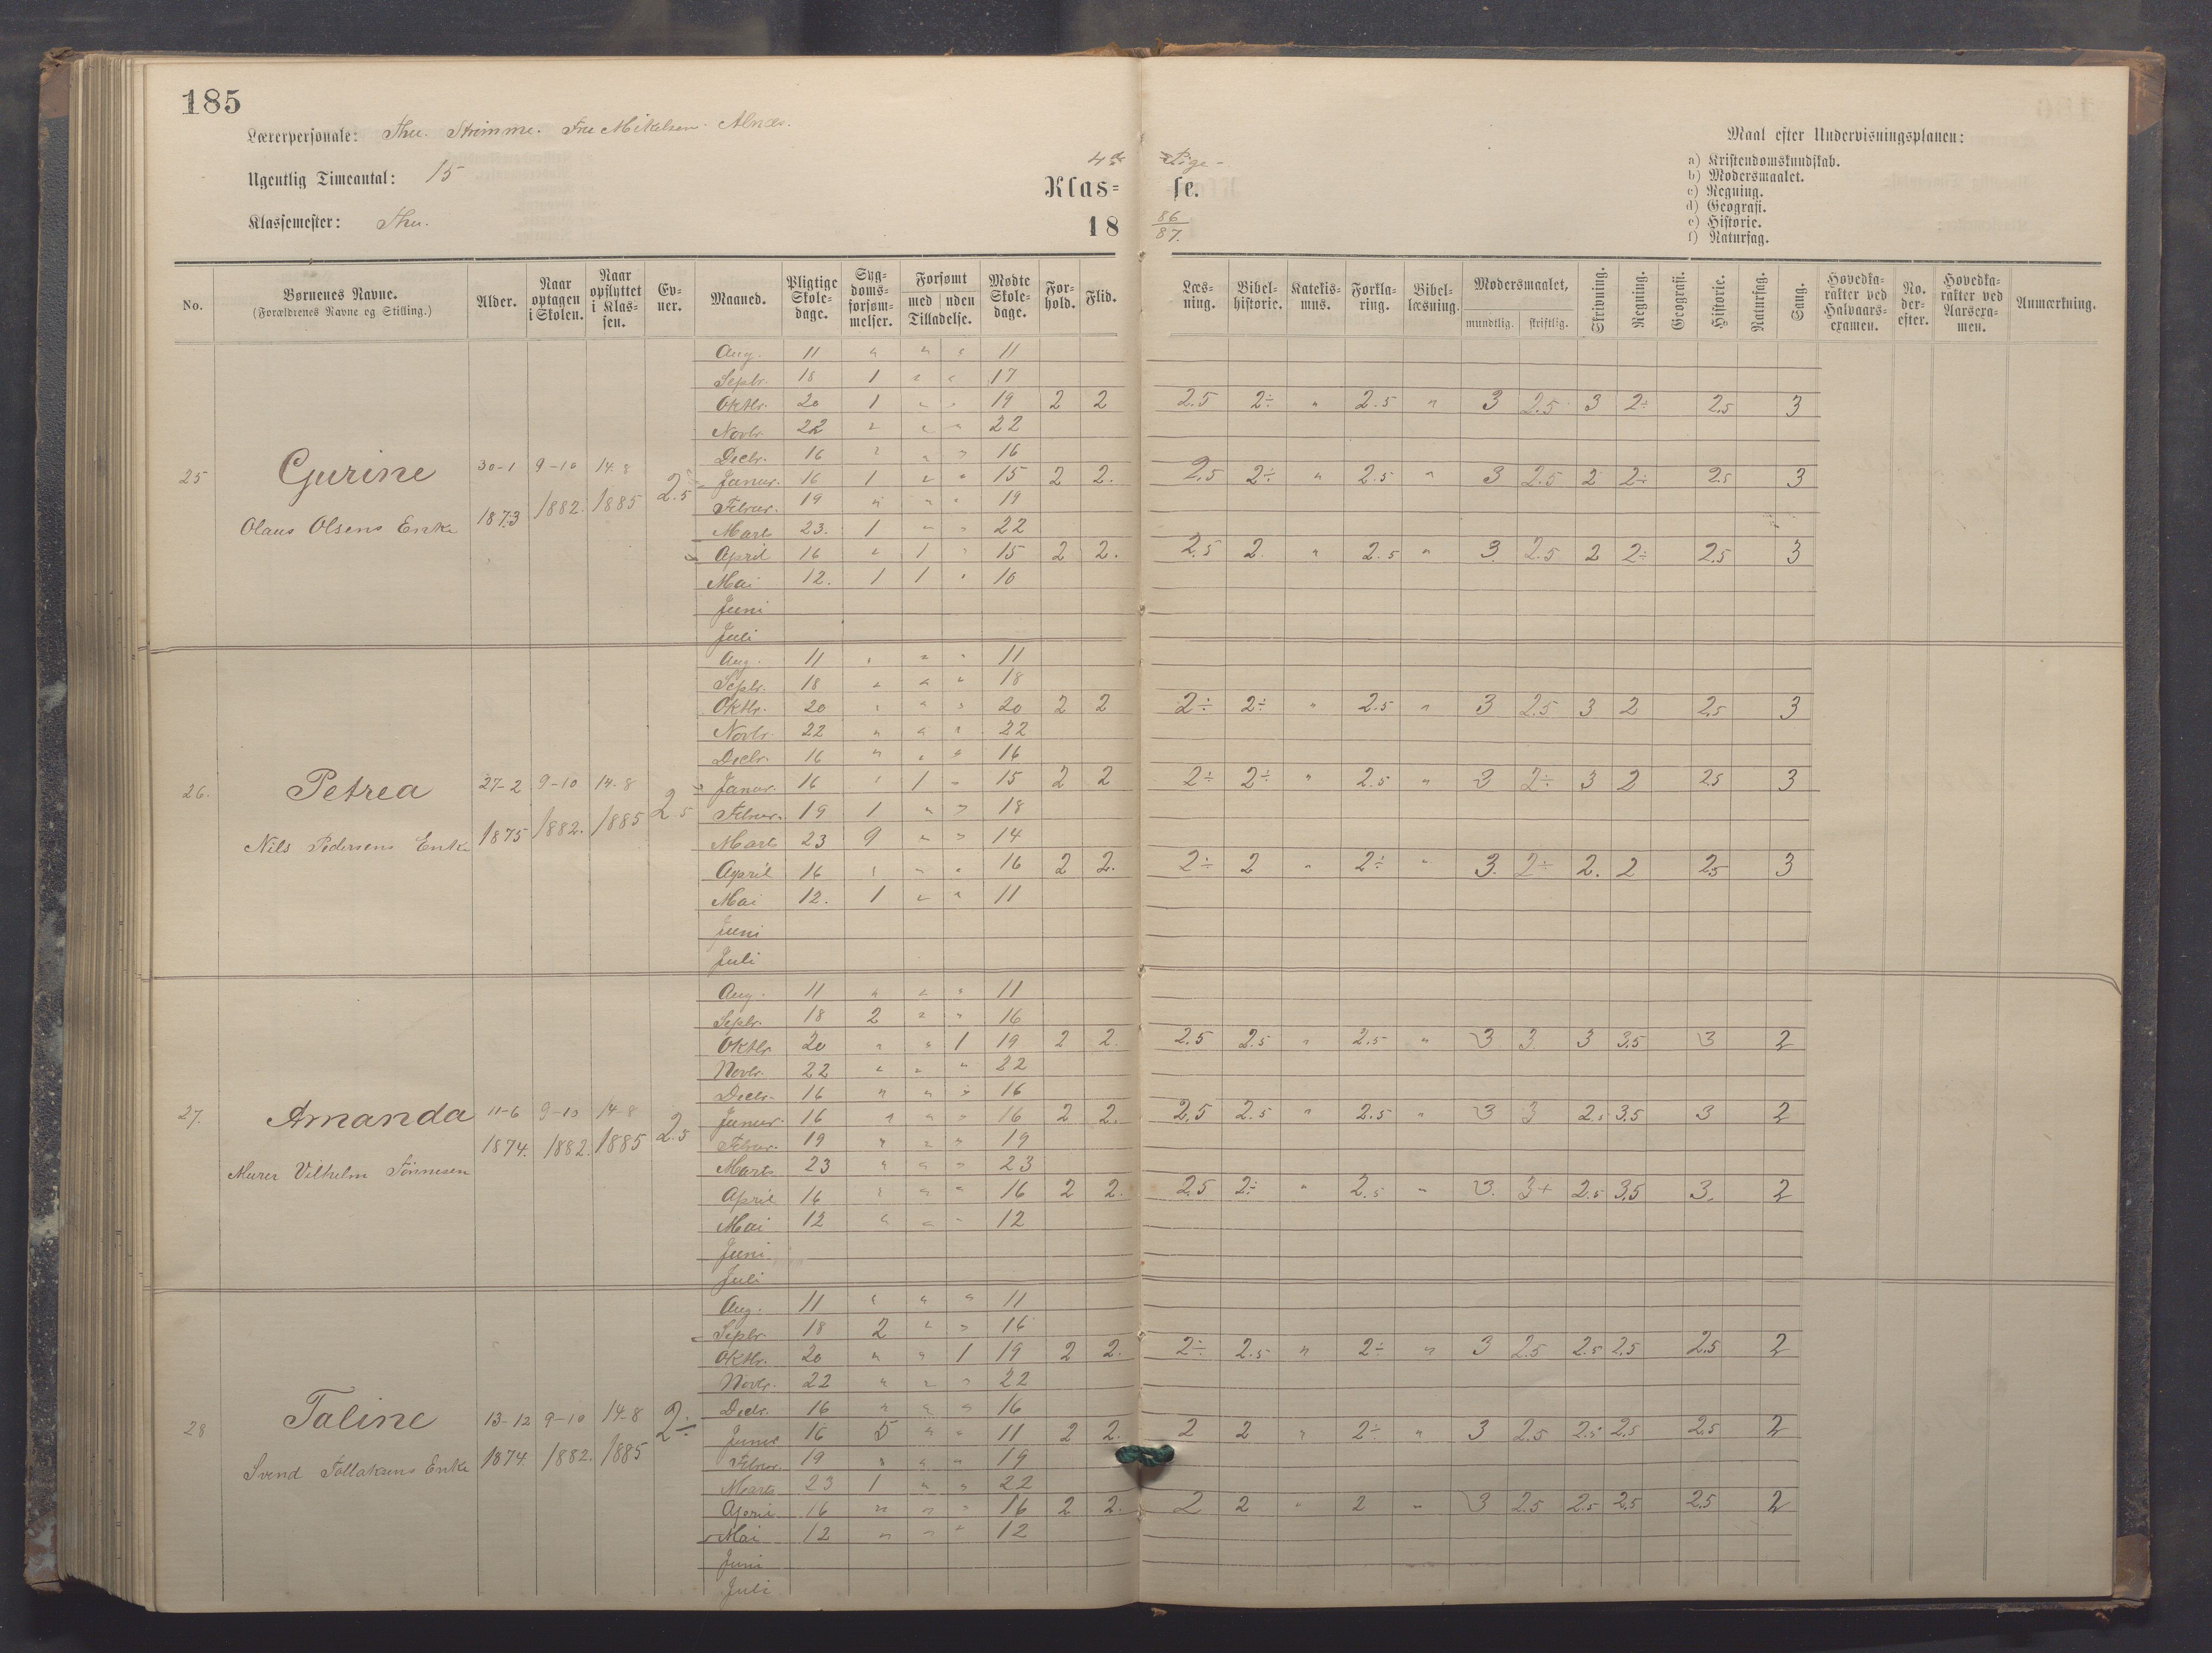 185
Lærerpersonale: Thu. Strömme. Fru Mikelsen. Alnæs.
Ugentlig Timeantal: 15
Klassemester: Thu.
4de Pige-
Klas= se.
18 86/87.
Maal efter Undervisningsplanen:
a) Kristendomskundskab.
b) Modersmaalet.
c) Regning.
d) Geografi.
e) Historie.
f) Naturfag.
No. Børnenes Navne. (Forældrenes Navne og Stilling.) Alder. Naar optagen i Skolen. Naar opflyttet i Klas=sen. Ev=ner. Maaned. Pligtige Skole=dage. Syg=doms=forsøm=melser. Forsømt med uden Tilladelse. Mødte Skole=dage. For=hold. Flid. Læs=ning. Bibel=historie. Katekis=mus. Forkla=ring. Bibel=læsning. Modersmaalet, mundtlig. skriftlig. Skrivning. Regning. Geografi. Historie. Naturfag. Sang. Hovedka=rakter ved Halvaars=examen. No. der=efter. Hovedka=rakter ved Aarsexa=men. Anmærkning.
25 Gurine 30-1 1873 9-10 1882. 14-8 1885 2.5
Olaus Olsens Enke
Aug. 11 " " " 11
Septr. 18 1 " " 17
Oktbr. 20 1 " " 19 2 2 2.5 2÷ " 2.5 " 3 2.5 3 2÷ 2.5 3
Novbr. 22 " " " 22
Decbr. 16 " " " 16
Januar. 16 1 " " 15 2 2. 2.5 2÷ " 2.5 " 3 2.5 2 2÷ 2.5 3
Februar. 19 " " " 19
Marts 23. 1 " " 22
April 16 " 1 " 15 2 2. 2.5 2. " 2.5 " 3. 2.5 2 2÷ 2.5 3
Mai 12. 1 1 " 10
Juni
Juli
26. Petrea 27-2 1875 9-10 1882. 14-8 1885 2.5
Nils Pedersens Enke
Aug. 11 " " " 11
Septr. 18 " " " 18
Oktbr. 20 " " " 20 2 2 2÷ 2÷ " 2.5 " 3 2.5 3 2 2.5 3
Novbr. 22 " " " 22
Decbr. 16 " " " 16
Januar. 16 " 1 " 15 2 2 2÷ 2÷ " 2.5 " 3 2÷ 3 2 2.5 3
Februar. 19 1 " " 18
Marts 23 9 " " 14
April 16 " " " 16 2 2. 2÷ 2 " 2÷ " 3. 2÷ 2. 2 2.5 3
Mai 12. 1 " " 11
Juni
Juli
27. Amanda 11-6 1874. 9-10 1882. 14-8 1885 2.5
Murer Vilhelm Tönnesen
Aug. 11 " " " 11
Septr. 18 2 " " 16
Oktbr 20 " " 1 19 2 2. 2.5 2.5 " 2.5 " 3 3 3 3.5 3 2
Novbr. 22 " " " 22
Decbr. 16 " " " 16
Januar. 16 " " " 16 2 2. 2.5 2.5 " 2.5 " 3 3 2.5 3.5 3 2
Februar. 19 " " " 19
Marts 23 " " " 23
April 16 " " " 16 2 2. 2.5 2÷ " 2.5 " 3. 3+ 2.5 3.5 3. 2
Mai 12 " " " 12
Juni
Juli
28 Taline 13-12 1874. 9-10 1882. 14-8 1885 2÷
Svend Tollaksens Enke
Aug. 11 " " " 11
Septr. 18 2 " " 16
Oktbr. 20 " " 1 19 2 2. 2÷ 2.5 " 2÷ " 3 2.5 2.5 2.5 2.5 2
Novbr. 22 " " " 22
Decbr. 16 " " " 16
Januar 16 5 " " 11 2 2. 2 2 " 2÷ " 3 2.5 2.5 2.5 2.5 2
Februar. 19 " " " 19
Marts 23 1 " " 22
April 16 " " " 16 2 2. 2 2 " 2 " 3 2.5 2.5 2.5 2.5 2
Mai 12 " " " 12
Juni
Juli